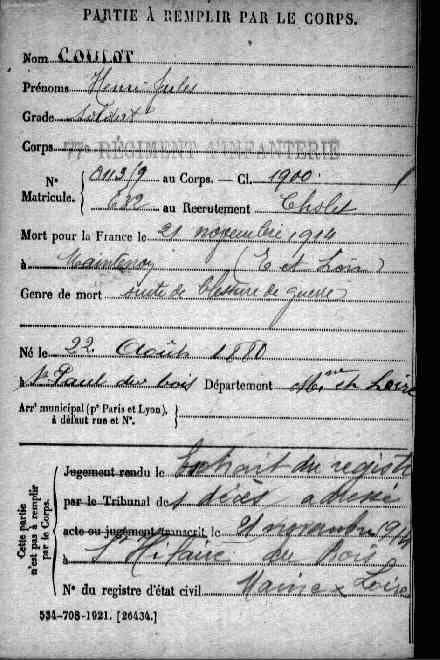 PARTIE À REMPLIR PAR LE CORPS.
Nom COULOT
Prénoms Henri Jules
Grade Soldat
Corps 77e RÉGIMENT D'INFANTERIE
N° Matricule. { 0113/9 au Corps. — Cl. 1900
232 au Recrutement Cholet
Mort pour la France le 21 novembre 1914
à Maintenon (E et Loir)
Genre de mort suite de blessure de guerre
Né le 22 Août 1880
à St Paul du bois Département Mne et Loire
Arrt municipal (pr Paris et Lyon), à défaut rue et N°. }
Cette partie n'est pas à remplir par le Corps.
Jugement rendu le Extrait du registre
par le Tribunal de décès adressé
acte ou jugement transcrit le 21 novembre 1914
à St Hilaire du Bois
N° du registre d'état civil Maine & Loire
534-708-1921. [26434.]